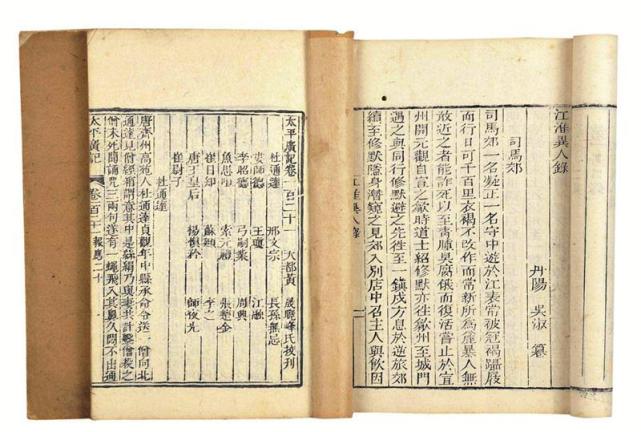 江淮異人錄
丹陽 吳淑 纂
司馬郊
司馬郊一名凝正一名守中遊於江表常被冠褐躡屐
而行日可千百里衣褐不改作而常新所為麄暴人無
敢近之者能詐死以至青腫臭腐俄而復活嘗止於宜
州開元觀自宣之歙時道士紹修默亦往歙州至城門
遇之與同行修默避之先往至一鎮戍方息於逆旅郊
續至修默隱身潛窺之見郊入別店中召主人與飲因
江淮異人錄
太平廣記卷一百二十一 天都黃 晟曉峰氏校刊
杜通達 邢文宗 長孫無忌
婁師德 王瓊 江融
李昭德 弓嗣業 周興
魚思咺 索元禮 張楚金
崔日知 蘇頲 李之
唐王皇后 楊慎矜 師夜光
崔尉子
杜通達
唐齊州高苑人杜通達貞觀年中縣承命令送一僧向北
通達見僧經箱謂意其中是絲絹乃與妻共計擊僧殺之
僧未死聞誦咒三兩句遂有一蠅飛入其鼻久悶不出通
太平廣記 卷百二十一 報應二十